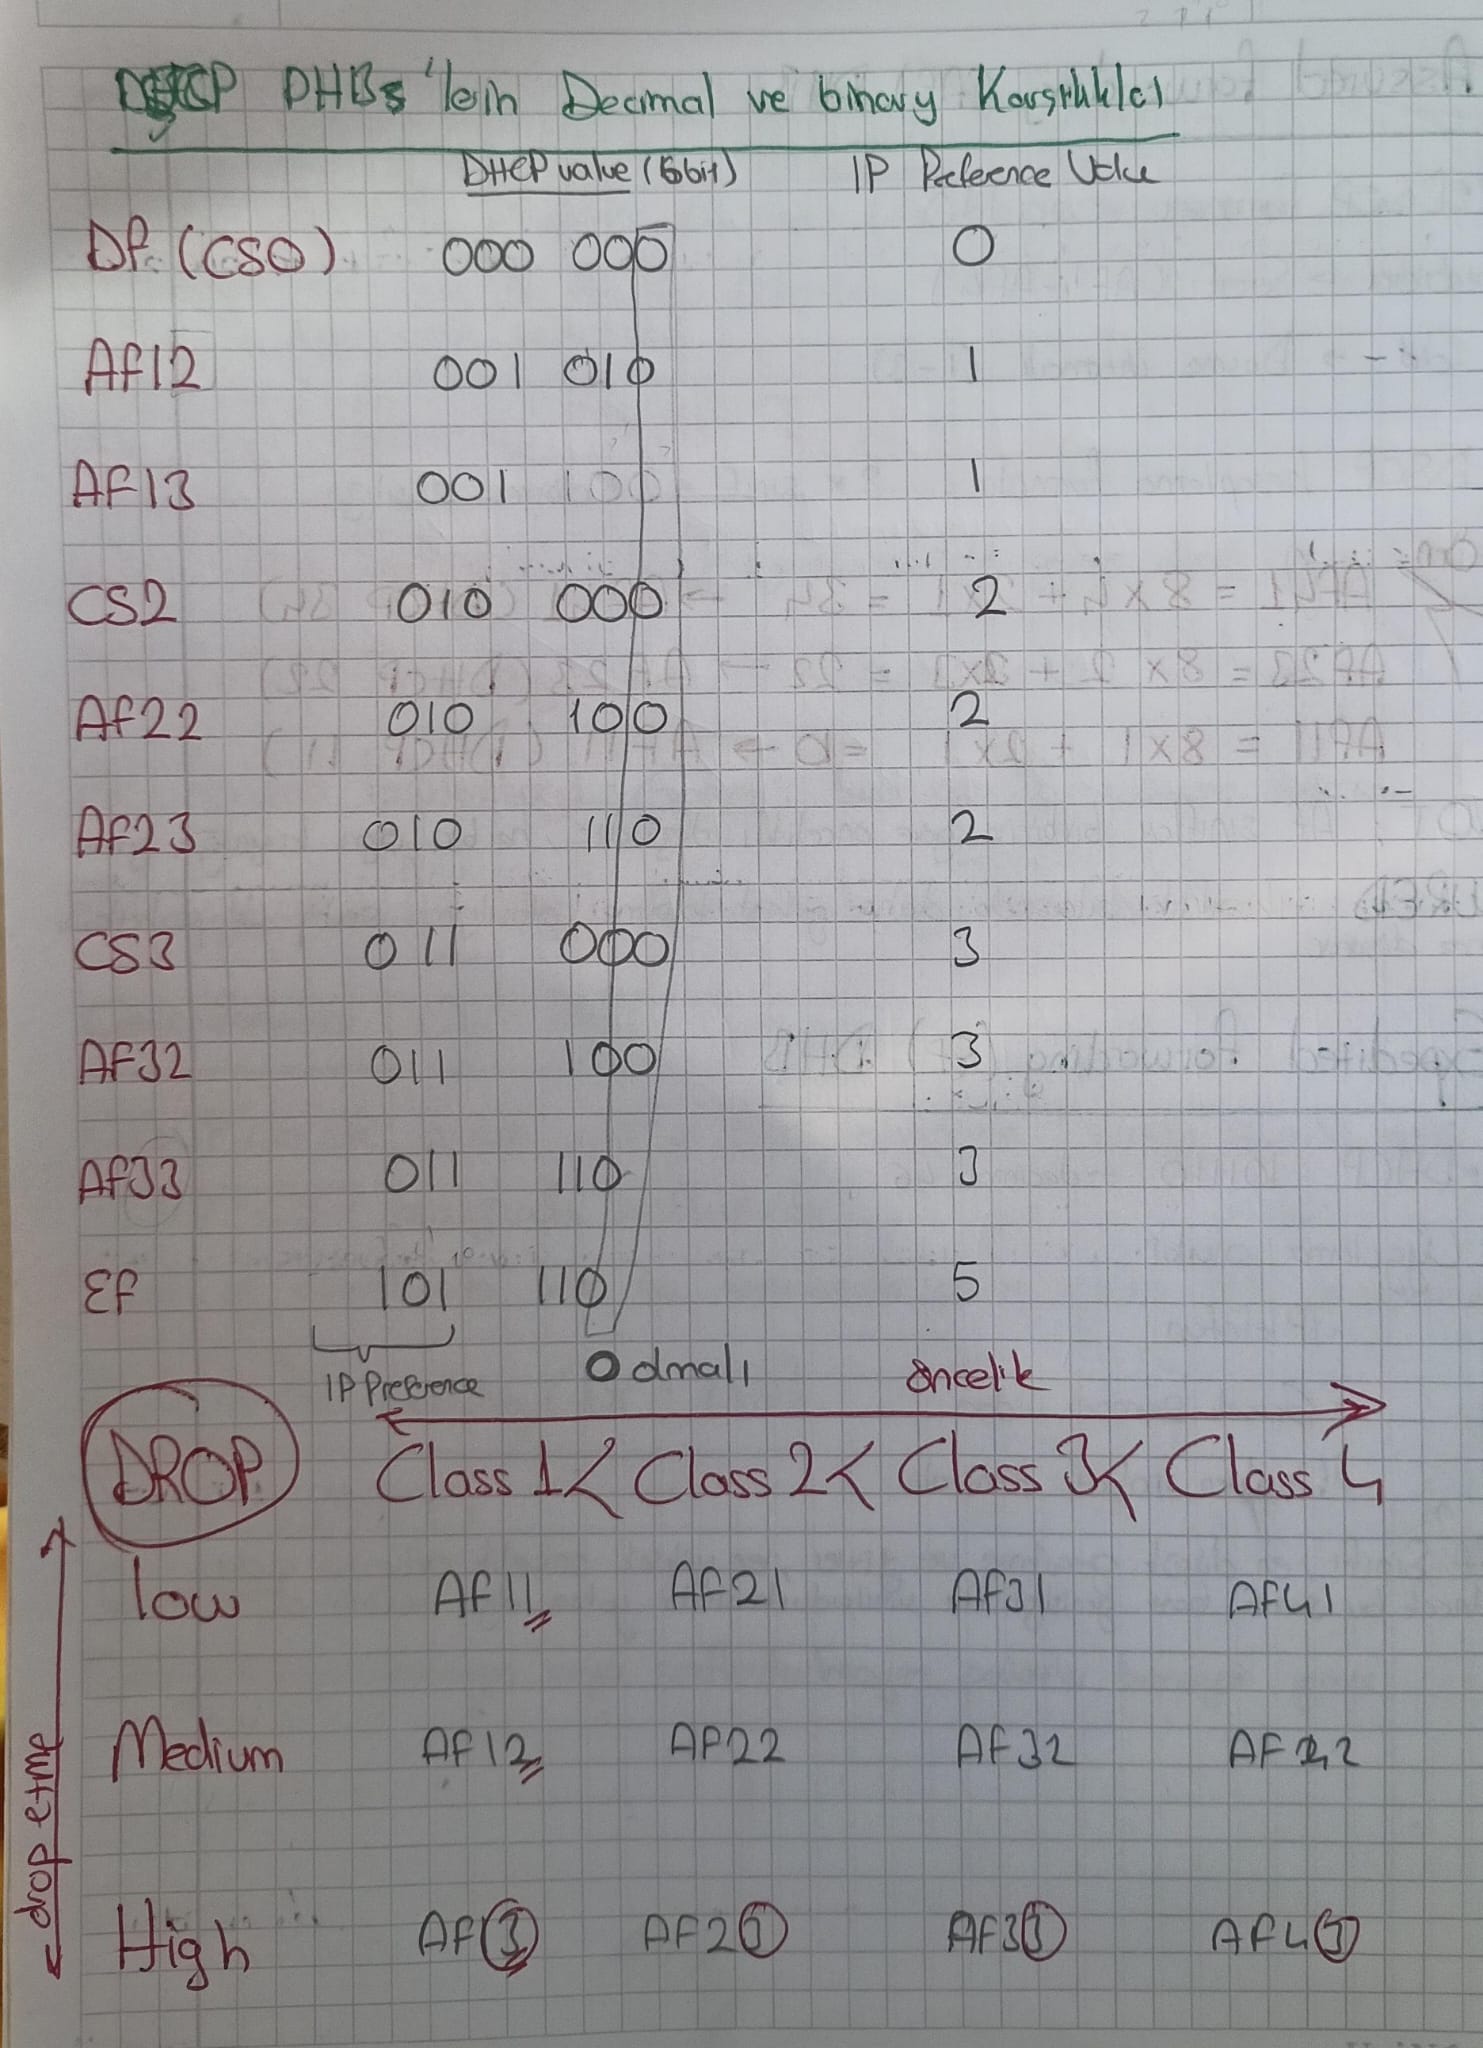 DSCP PHBs 'lerin Decimal ve binary Karşılıkları
DHCP value (6bit) IP Preference Value
Df (CS0) 000 000 0
Af12 001 010 1
AF13 001 100 1
CS2 010 000 2
Af22 010 100 2
Af23 010 110 2
CS3 011 000 3
AF32 011 100 3
Af33 011 110 3
Ef 101 110 5
IP Preference 0 olmalı öncelik
DROP Class 1< Class 2< Class 3< Class 4
low Af11 AF21 Af31 Af41
Medium AF12 AF22 AF32 AF42
High AF13 AF23 AF33 AF43
drop etme